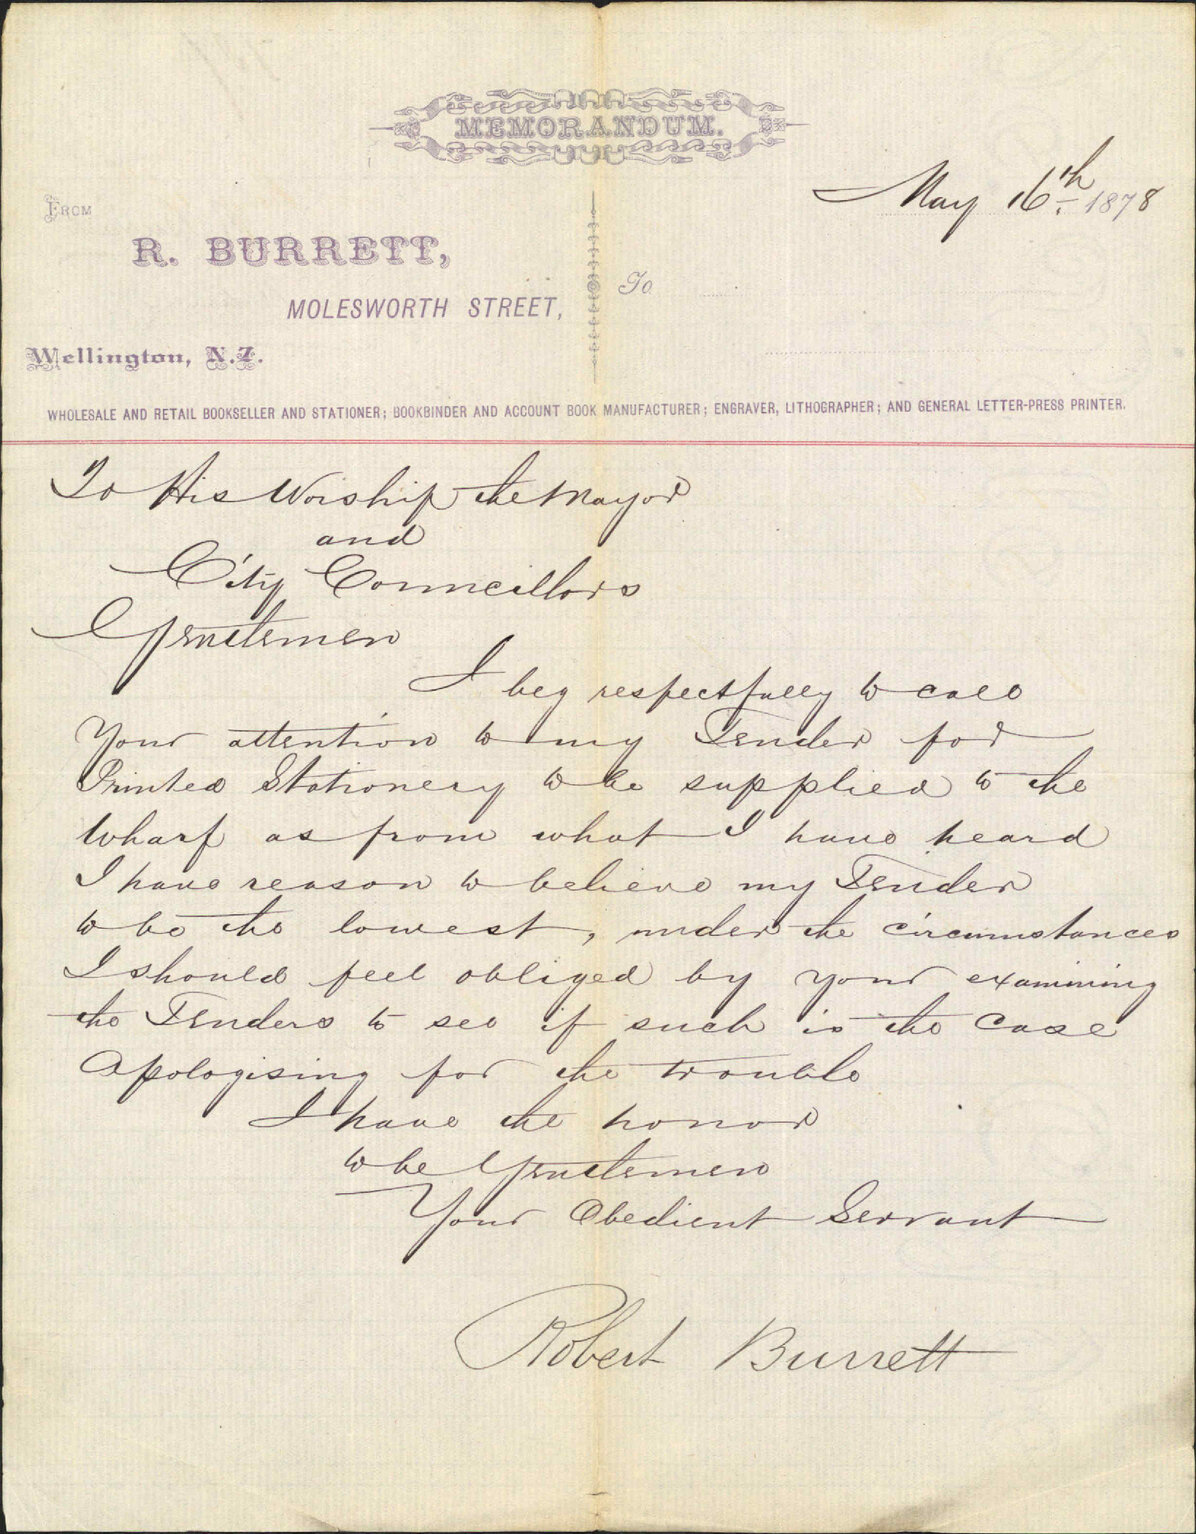 MEMORANDUM.
May 16th 1878
FROM
R. BURRETT,
MOLESWORTH STREET,
To
Wellington, N.Z.
WHOLESALE AND RETAIL BOOKSELLER AND STATIONER; BOOKBINDER AND ACCOUNT BOOK MANUFACTURER; ENGRAVER, LITHOGRAPHER; AND GENERAL LETTER-PRESS PRINTER.
To His Worship the Mayor
and
City Councillors
Gentlemen
I beg respectfully to call
Your attention to my Tender for
Printed Stationery to be supplied to the
Wharf as from what I have heard
I have reason to believe my Tender
to be the lowest, under the circumstances
I should feel obliged by your examining
the Tenders to see if such is the case
Apologising for the trouble
I have the honor
to be Gentlemen
Your Obedient Servant
Robert Burrett